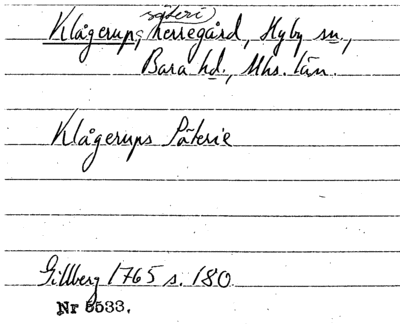 säteri)
Klågerups herregård, Hyby sn.,
Bara hd., Mhs. län.
Klågerups Säterie
Gillberg 1765 s. 180
Nr 5533.